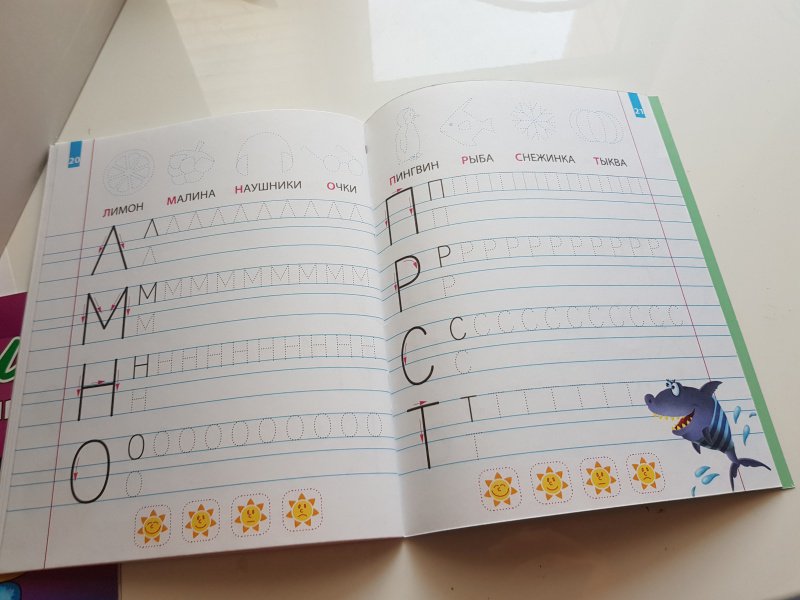 20
ЛИМОН МАЛИНА НАУШНИКИ ОЧКИ
Л Л Л Л Л Л Л Л Л Л Л
Л
М М М М М М М М М М
М
Н Н Н Н Н Н Н Н Н Н Н
Н
О О О О О О О О О О О
О
21
ПИНГВИН РЫБА СНЕЖИНКА ТЫКВА
П П П П П П П П П П П
П
Р Р Р Р Р Р Р Р Р Р Р Р
Р
С С С С С С С С С С С С
С
Т Т Т Т Т Т Т Т
Т